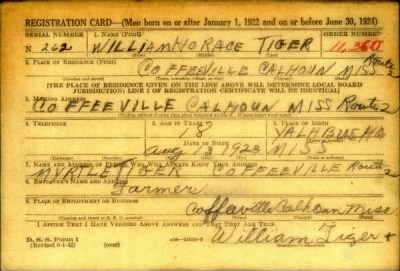 REGISTRATION CARD—(Men born on or after January 1, 1922 and on or before June 30, 1924)
SERIAL NUMBER 1. NAME (Print) ORDER NUMBER
N 262 WILLIAM HORACE TIGER 11,360
2. PLACE OF RESIDENCE (Print)
COFFEEVILLE CALHOUN MISS Route 2
[THE PLACE OF RESIDENCE GIVEN ON THE LINE ABOVE WILL DETERMINE LOCAL BOARD
JURISDICTION; LINE 2 OF REGISTRATION CERTIFICATE WILL BE IDENTICAL]
3. MAILING ADDRESS
COFFEEVILLE CALHOUN MISS Route 2
4. TELEPHONE 5. AGE IN YEARS 6. PLACE OF BIRTH
18 YALABUSHA
DATE OF BIRTH
Aug MISS
7. NAME AND ADDRESS OF PERSON WHO WILL ALWAYS KNOW YOUR ADDRESS
MYRTLE TIGER COFFEEVILLE Route 2
8. EMPLOYER'S NAME AND ADDRESS
Farmer
9. PLACE OF EMPLOYMENT OR BUSINESS
Coffeeville Calhoun Miss
I AFFIRM THAT I HAVE VERIFIED ABOVE ANSWERS AND THAT THEY ARE TRUE.
D. S. S. FORM 1
(Revised 6-1-42) (over)
William Tiger